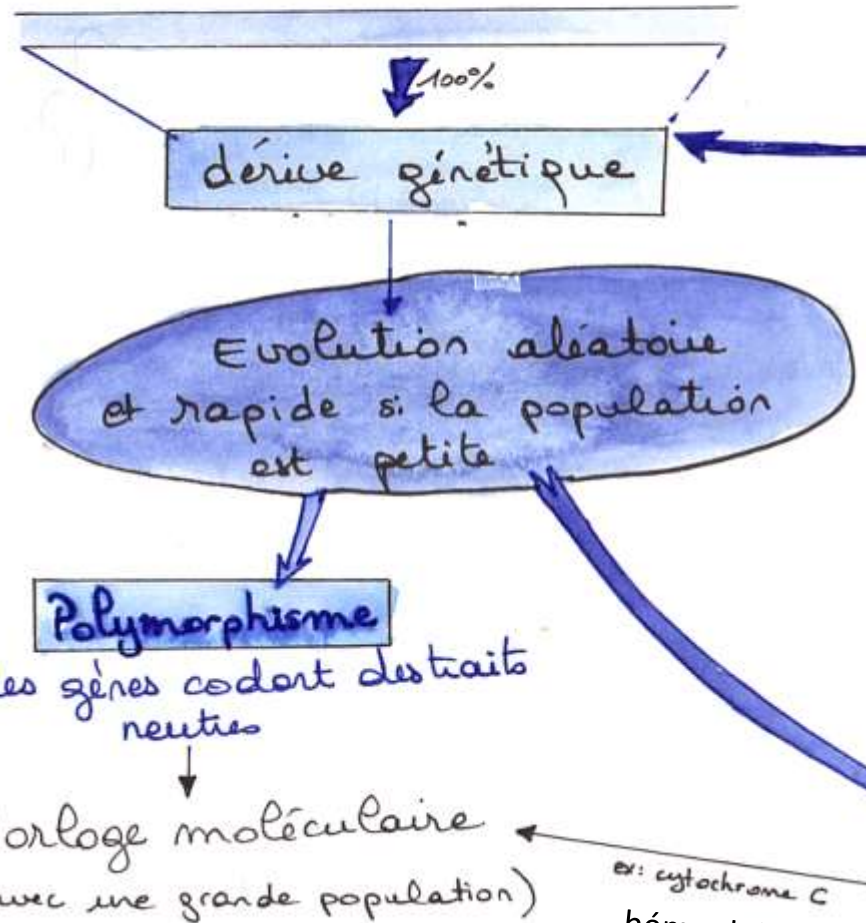 100%
dérive génétique
Evolution aléatoire
et rapide si la population
est petite
Polymorphisme
es gènes codant des traits
neutres
orloge moléculaire
avec une grande population)
ex: cytochrome C